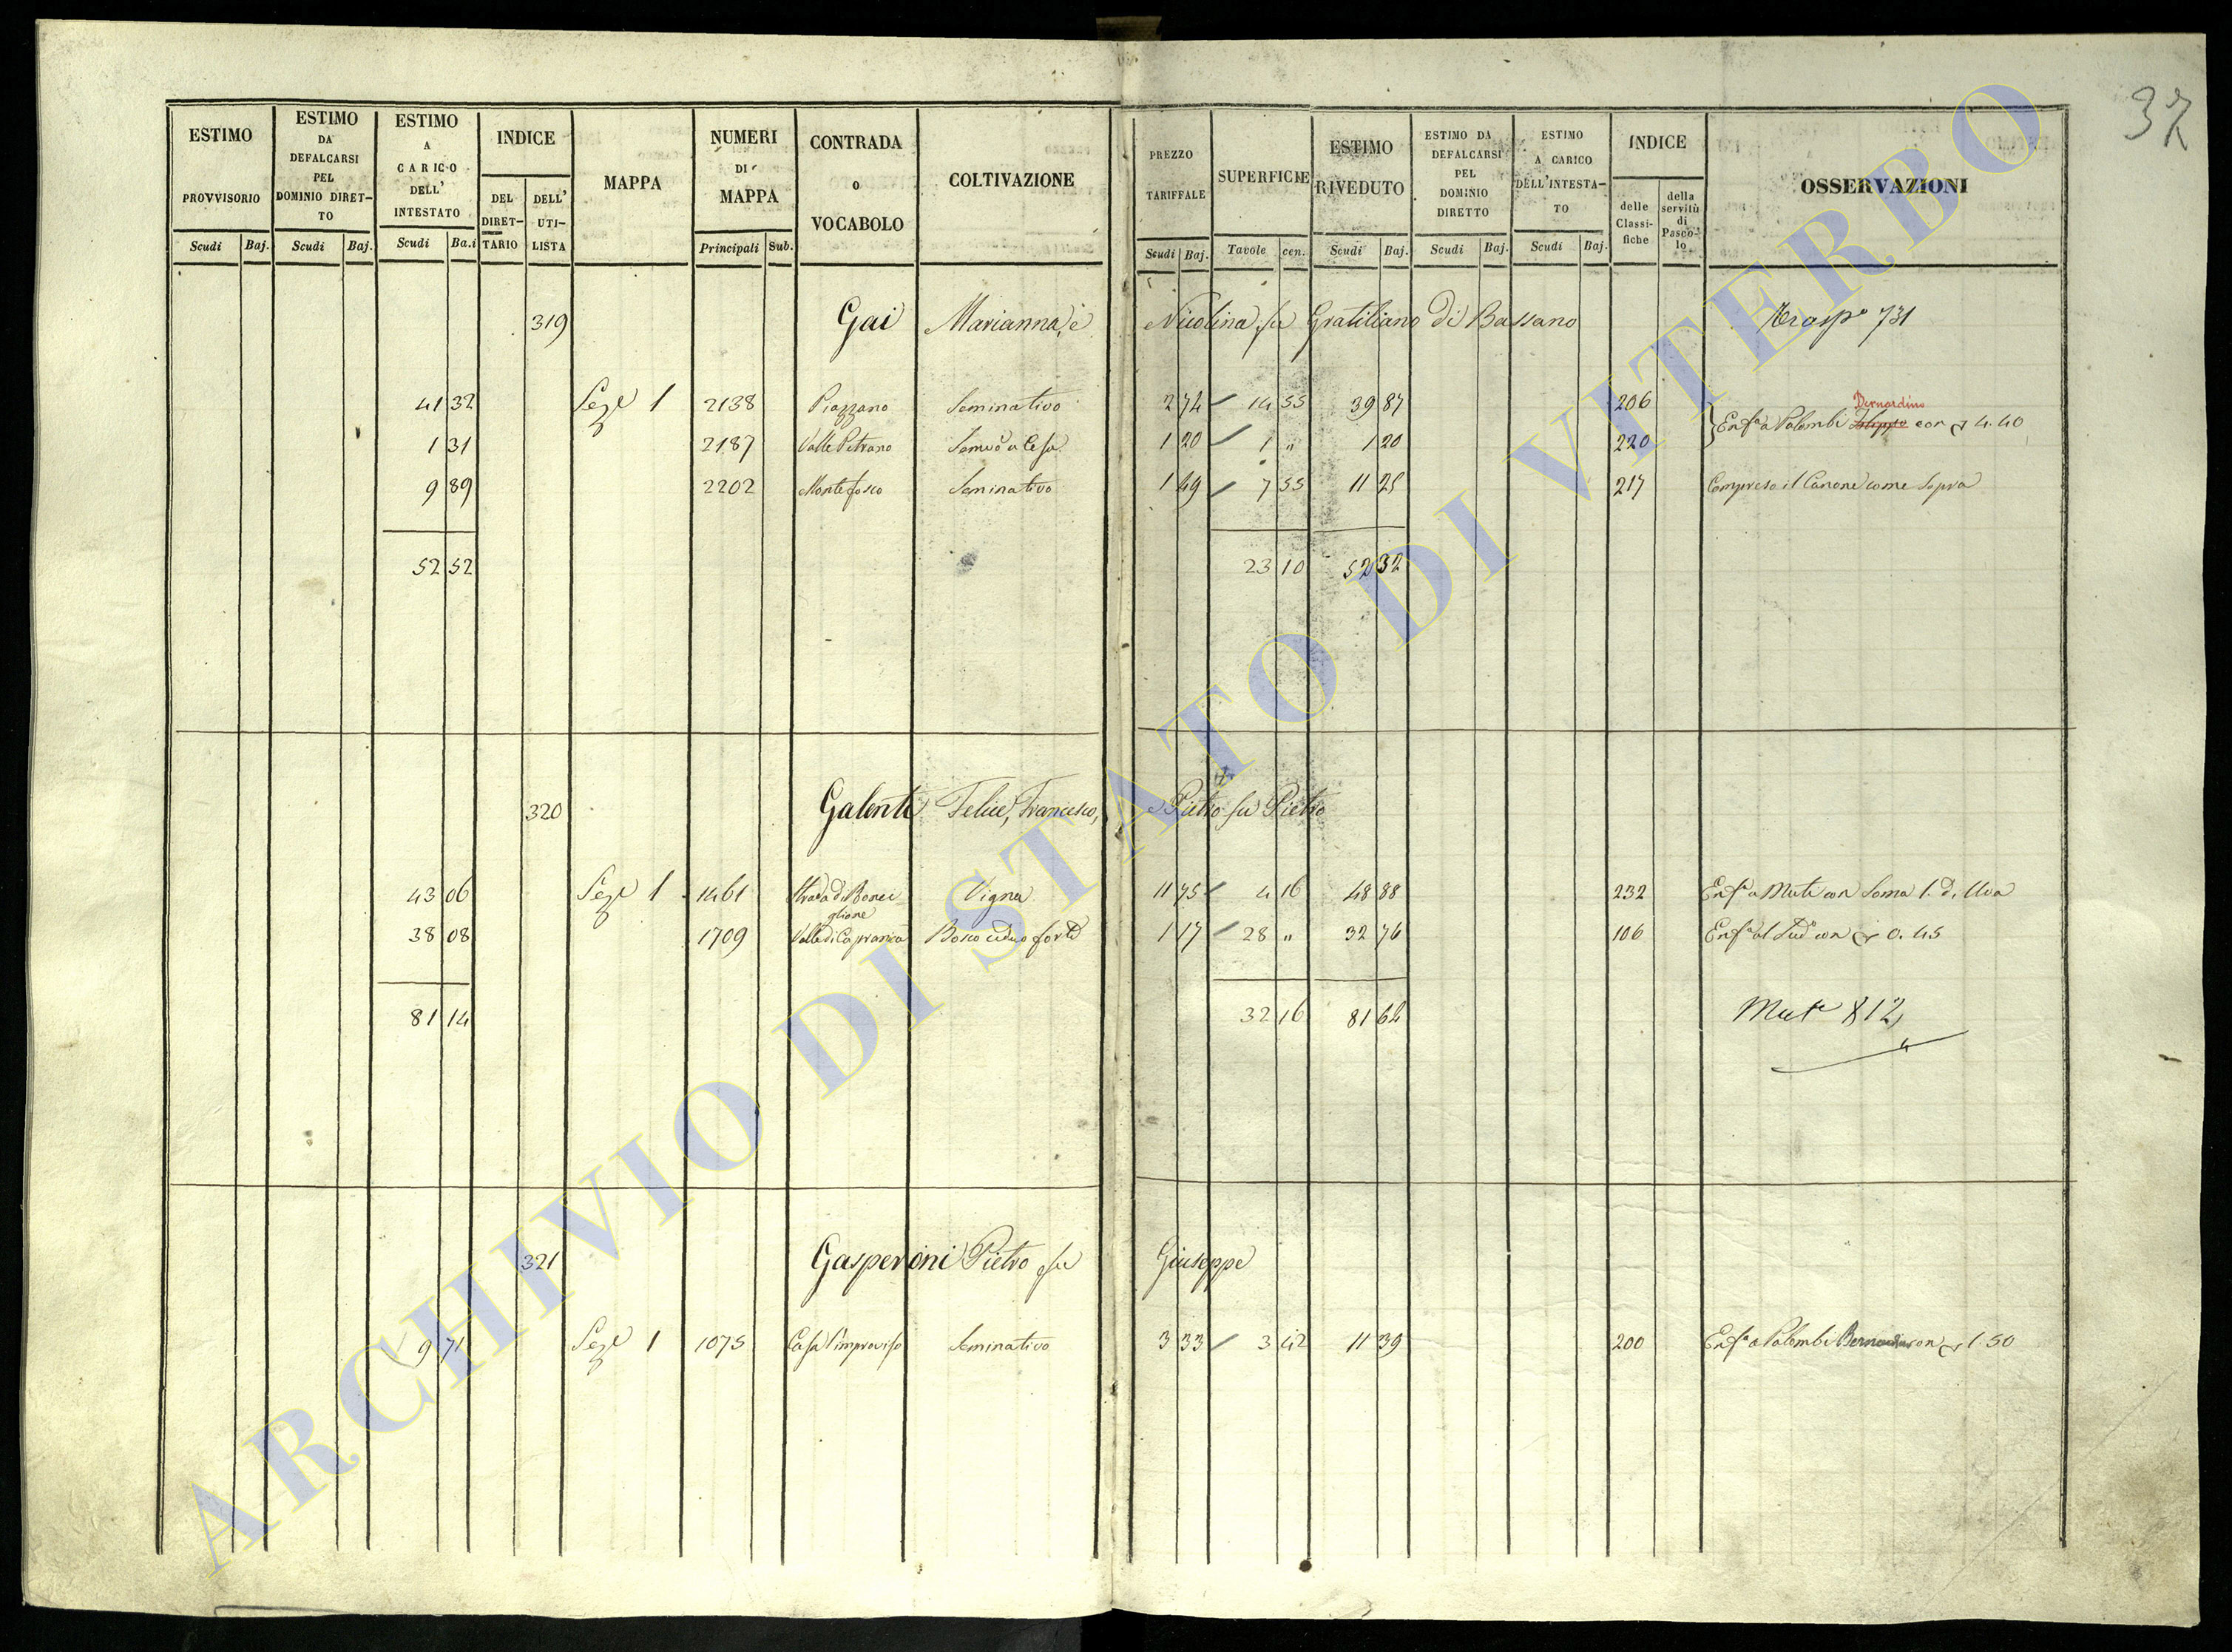 37
ESTIMO PROVVISORIO Scudi Baj.
ESTIMO DA DEFALCARSI PEL DOMINIO DIRETTO Scudi Baj.
ESTIMO A CARICO DELL' INTESTATO Scudi Ba.i
INDICE DEL DIRETTARIO DELL' UTILISTA
MAPPA
NUMERI DI MAPPA Principali Sub.
CONTRADA O VOCABOLO
COLTIVAZIONE
PREZZO TARIFFALE Scudi Baj.
SUPERFICIE Tavole cen.
ESTIMO RIVEDUTO Scudi Baj.
ESTIMO DA DEFALCARSI PEL DOMINIO DIRETTO Scudi Baj.
ESTIMO A CARICO DELL'INTESTATO Scudi Baj.
INDICE delle Classifiche della servitù di Pascolo
OSSERVAZIONI
319 Gai Marianna, e Nicolina fu Gratiliano di Bassano Trasp° 731
41 32 Sez.e 1 2138 Piazzano Seminativo 2 74 14 55 39 87 206
Bernardino
Enf.a a Palombi con 4.40
1 31 2187 Valle Petrano 1 20 1 " 1 20 220
9 89 2202 Montefosco Seminativo 1 49 7 55 11 25 217 Compreso il Canone come Sopra
52 52 23 10 52 32
320 Galenti Felice, Francesco, e Pietro fu Pietro
43 06 Sez.e 1 1461 Strada di Ronciglione Vigna 11 75 4 16 48 88 232 Enf.a a Muti con Soma 1. d'Uva
38 08 1709 Valle di Capranica Bosco ceduo forte 1 17 28 " 32 76 106 Enf.a al Sud.o con 0.45
81 14 32 16 81 64 Mut.e 812
321 Gasperoni Pietro fu Giuseppe
9 71 Sez.e 1 1075 Casa l'improviso Seminativo 3 33 3 42 11 39 200 Enf.a a Palombi Bernardino con 1.50
ARCHIVIO DI STATO DI VITERBO